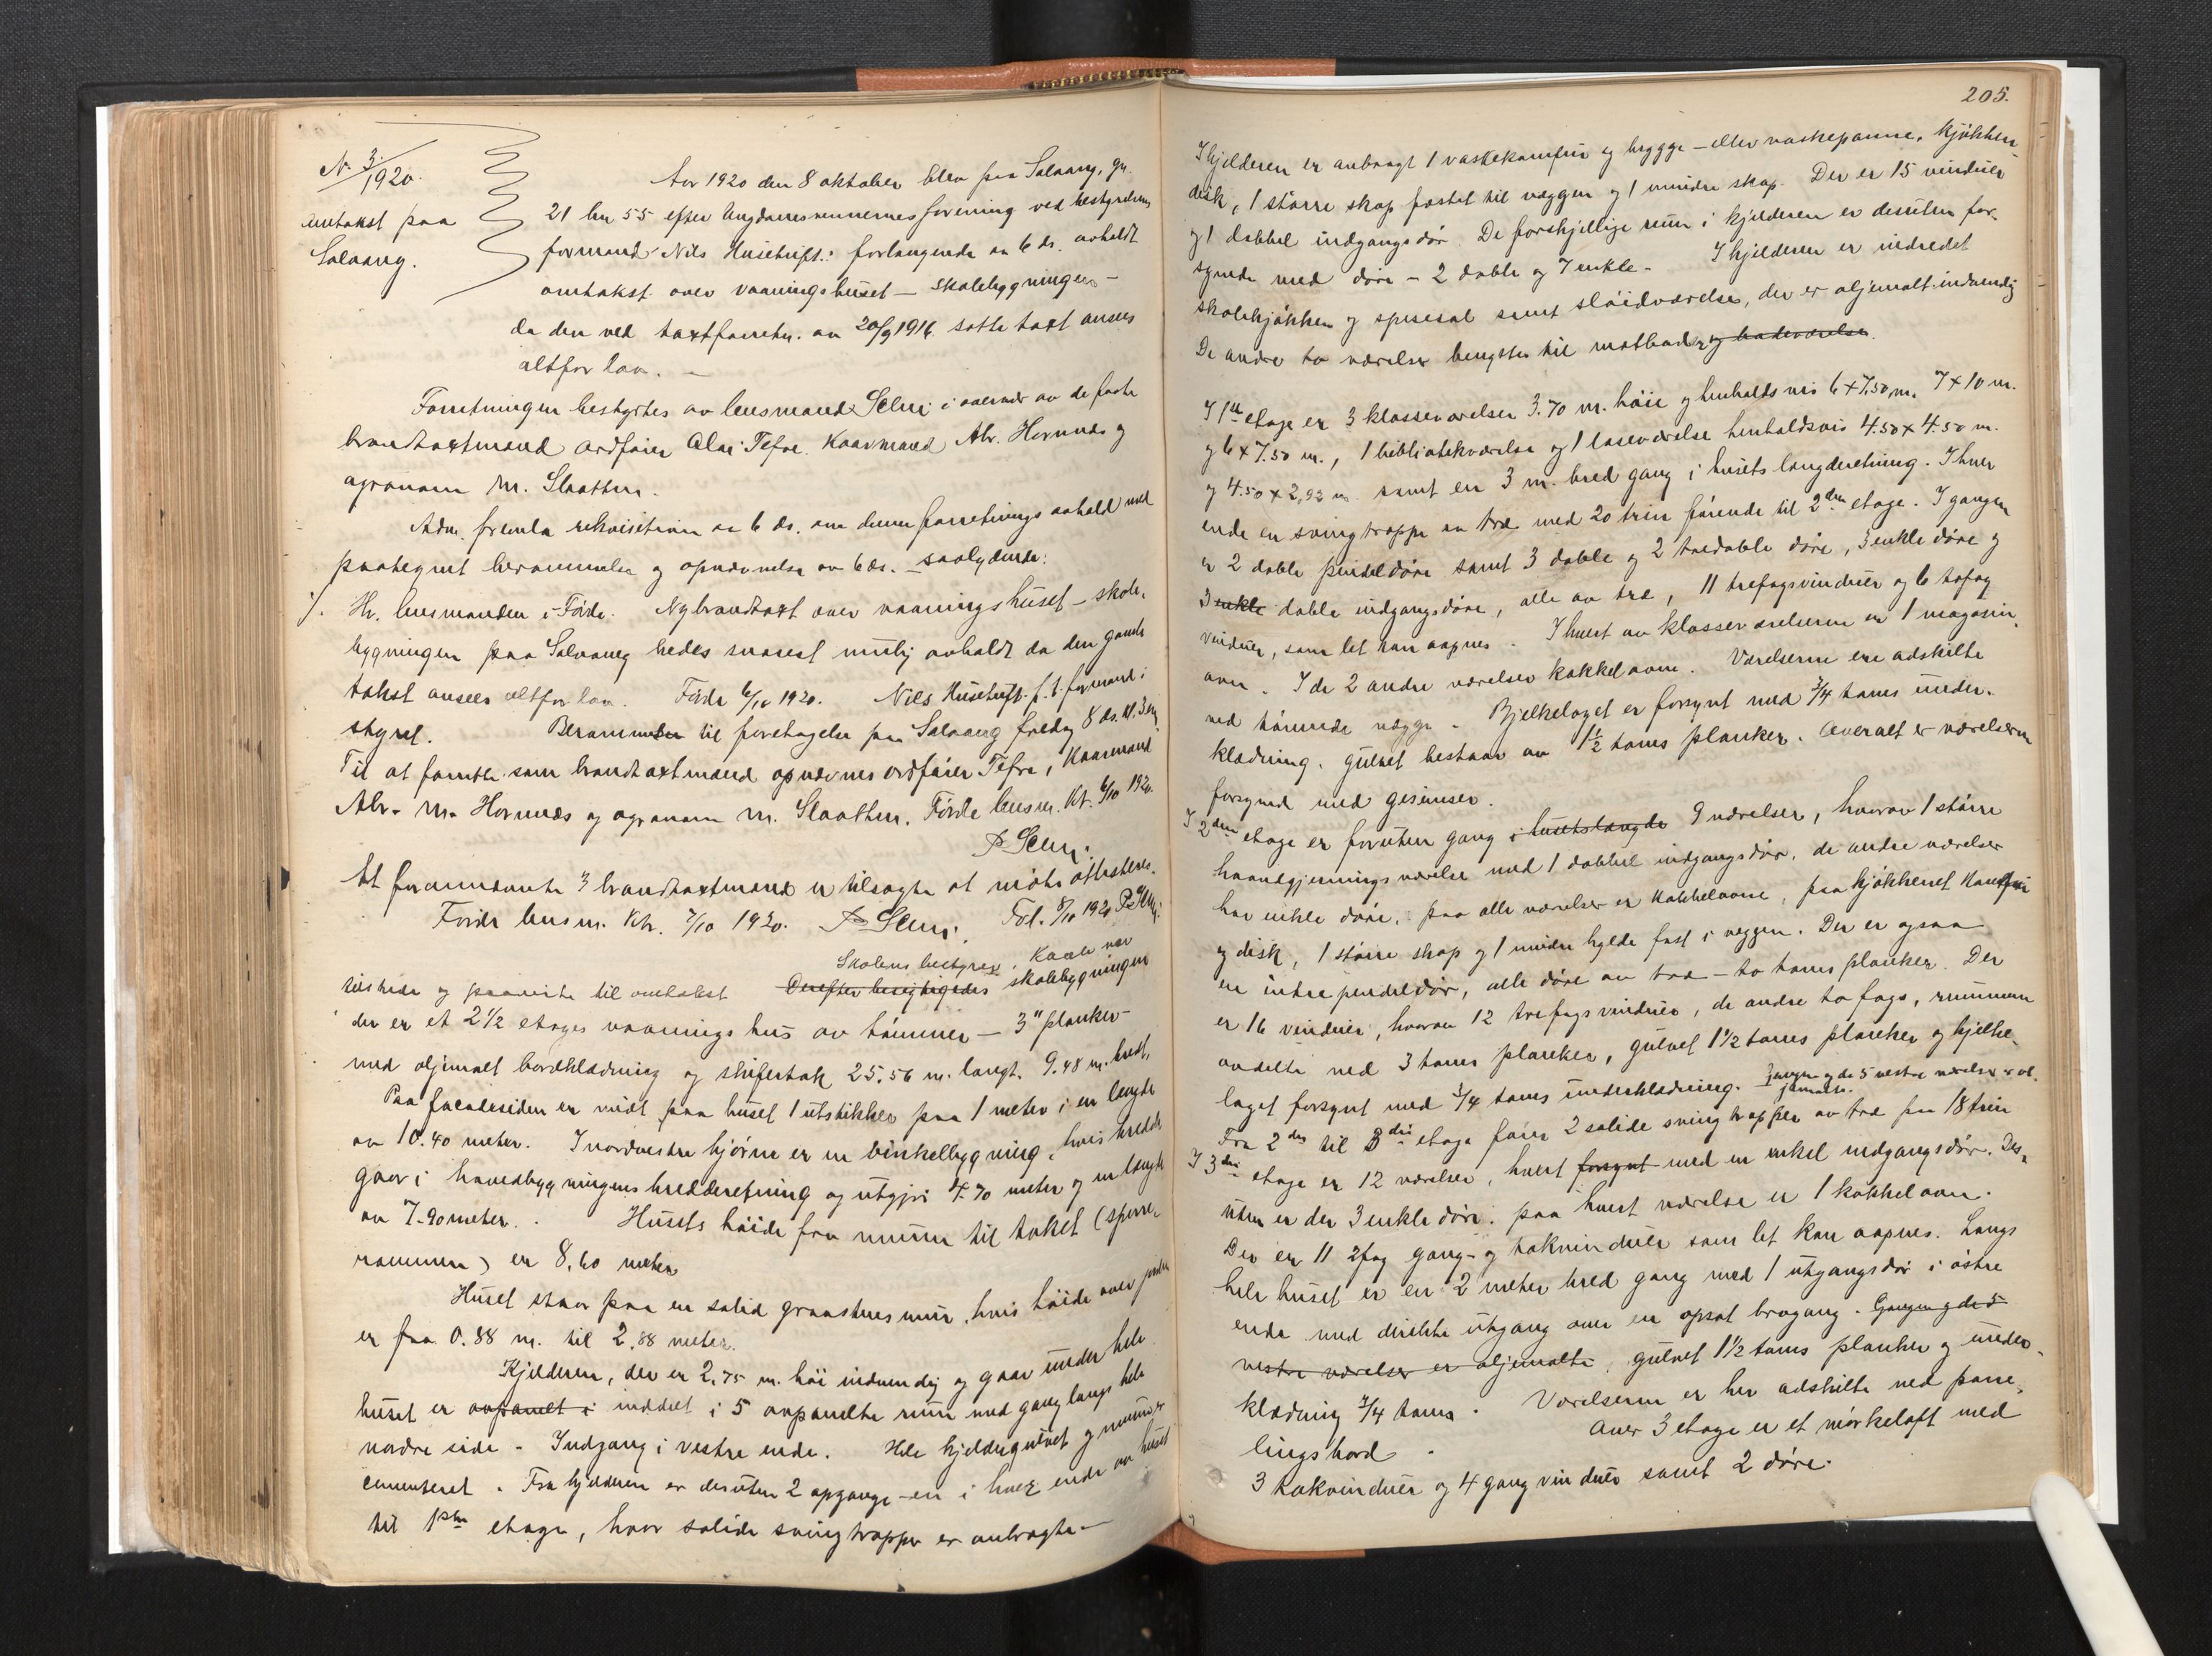 No 3/1920.
omtakst paa
Solvang.
Aar 1920 den 8 oktober blev paa Solvang, gr.
21 bn 55 efter Ungdomsvennernes forening ved bestyrelsens
formand Nils Husetuft.s forlangende av 6 ds. avholdt
omtakst over vaaningshuset – skolebygningen –
da den ved taxtforretn. av 20/9 1916 satte taxt ansees
altfor lav. –
Forretningen bestyrtes av lensmand Selmi i overvær av de faste
brandtaxtmænd ordfører Olai Tefre, Kaarmand Abr. Hornnæs og
agronom M. Slaatten.
Adm. fremla rekvisition av 6 ds. om denne forretnings avhold med
paategnet berammelse og opnævnelse av 6 ds. – saalydende:
./. Hr. lensmanden i Førde. Ny brandtaxt over vaaningshuset – skole-
bygningen paa Solvang bedes snarest mulig avholdt da den gamle
takst ansees altfor lav. Førde 6/10 1920. Nils Husetuft f.t. formand i
styret. Berammes til foretagelse paa Solvang fredag 8 ds. kl. 3 em.
Til at foretta som brandtaxtmænd opnævnes ordfører Tefre, Kaarmand
Abr. M. Hornnæs og agronom M. Slaatten. Førde lensm. Kt. 6/10 1920.
P. Selmi.
At forannævnte 3 brandtaxtmænd er tilsagte at møte attesteres.
Førde lensm. Ktr. 7/10 1920. P. Selmi. Fol. 8/10 1920 P Selmi
Skolens bestyrer, Kaale var
tilstede og paaviste til omtakst Derefter besigtigedes skolebygningen
der er et 2 1/2 etages vaaningshus av tømmer – 3" planker –
med oljemalt bordklædning og skifertak 25.56 m. langt. 9.48 m. bredt.
Paa facadesiden er midt paa huset 1 utstikker paa 1 meter i en længde
av 10.40 meter. I nordvestre hjørne er en vinkelbygning, hvis bredde
gaar i hovedbygningens bredderetning og utgjør 4.70 meter og en længde
av 7.90 meter. Husets høide fra muren til taket (sperre-
rammen) er 8.60 meter
Huset staar paa en solid graastensmur, hvis høide over jorden
er fra 0.88 m. til 2.88 meter.
Kjelderen, der er 2.75 m. høi indvendig og gaar under hele
huset er avpanelt i inddelt i 5 avpanelte rum med gang langs hele
nordre side – Indgang i vestre ende. Hele kjeldergulvet og murene er
cementeret. Fra kjelderen er desuten 2 opgange – en i hver ende av huset
til 1ste etage, hvor solide svingtrapper er anbragte –
205.
I kjelderen er anbragt 1 vaskekomfur og brygge – eller vaskepanne, kjøkken-
disk, 1 større skap fæstet til væggen og 1 mindre skap. Der er 15 vinduer
og 1 dobbel indgangsdør. De forskjellige rum i kjelderen er desuten for-
synede med døre – 2 doble og 7 enkle – I kjelderen er indredet
skolekjøkken og spisesal samt sløidværelse, der er oljemalt indvendig
De andre to værelser benyttes til matboder og badeværelse.
I 1ste etage er 3 klasseværelser 3.70 m. høie og henholdsvis 6 x 7.50 m. 7 x 10 m.
og 6 x 7.50 m., 1 bibliotekværelse og 1 læseværelse henholdsvis 4.50 x 4.50 m.
og 4.50 x 2,92 m. samt en 3 m. bred gang i husets længderetning. I hver
ende en svingtrappe av træ med 20 trin førende til 2den etage. I gangen
er 2 doble pendeldøre samt 3 doble og 2 tredoble døre, 3 enkle døre og
3 enkle doble indgangsdøre, alle av træ, 11 trefagsvinduer og 6 tofag
vinduer, som let kan aapnes. I hvert av klasseværelserne er 1 magasin-
ovn. I de 2 andre værelser kakkelovne. Værelserne ere adskilte
ved tømrede vægge – Bjelkelaget er forsynt med 3/4 toms under-
klædning. Gulvet bestaar av 1 1/2 toms planker. Overalt er værelserne
forsynet med gesimser.
I 2den etage er foruten gang i husets længde 9 værelser, hvorav 1 større
haandgjerningsværelse med 1 dobbel indgangsdør, de andre værelser
har enkle døre, paa alle værelser er kakkelovne, paa kjøkkenet komfur
og disk, 1 større skap og 1 mindre hylde fast i væggen. Der er ogsaa
en indre pendeldør, alle døre av træ – to toms planker. Der
er 16 vinduer, hvorav 12 trefagsvinduer, de andre to fags, rummene
avdelte med 3 toms planker, gulvet 1 1/2 toms planker og bjelke-
laget forsynt med 3/4 toms underklædning. Gangen og de 5 vestre værelser er ol-
jemalte.
Fra 2den til 3die etage fører 2 solide svingtrapper av træ paa 18 trin
I 3die etage er 12 værelser, hvert forsynt med en enkel indgangsdør. Des-
uten er der 3 enkle døre. paa hvert værelse er 1 kakkelovn.
Der er 11 2fag gang- og takvinduer som let kan aapnes. Langs
hele huset er en 2 meter bred gang med 1 utgangsdør i østre
ende med direkte utgang over en opsat brogang. Gangen og de 5
vestre værelser er oljemalte, gulvet 1 1/2 toms planker og under-
klædning 3/4 toms. Værelserne er her adskilte ved pane-
lingsbord. Over 3 etage er et mørkeloft med
3 takvinduer og 4 gangvinduer samt 2 døre.